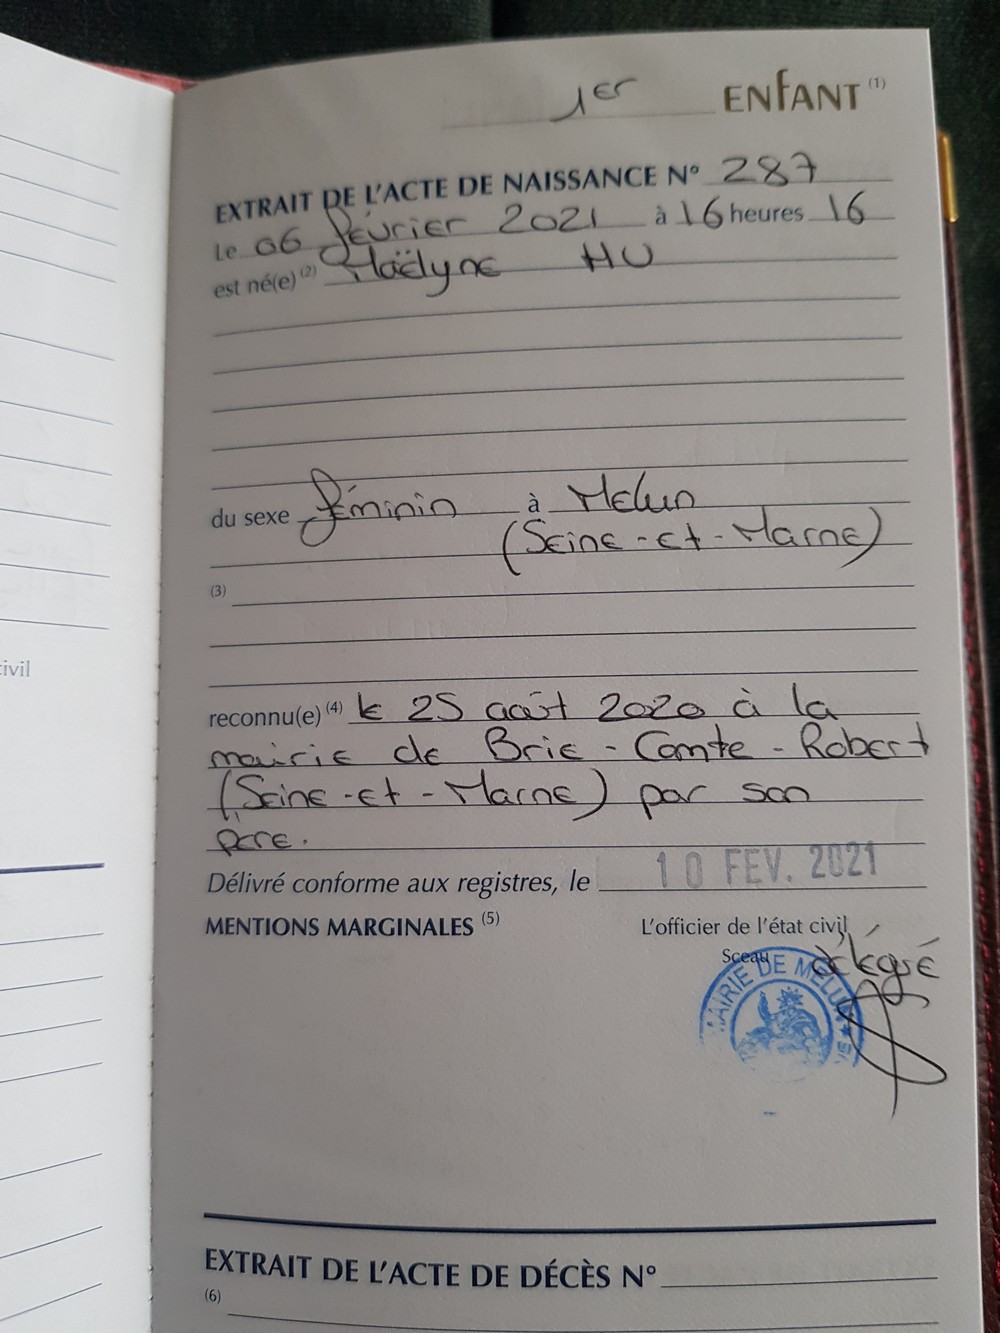 1er ENFANT (1)
EXTRAIT DE L'ACTE DE NAISSANCE N° 287
Le 06 février 2021 à 16 heures 16
est né(e) (2) Maëlyne HU
du sexe féminin à Melun
(Seine-et-Marne)
(3)
reconnu(e) (4) le 25 août 2020 à la
mairie de Brie-Comte-Robert
(Seine-et-Marne) par son
père.
Délivré conforme aux registres, le 10 FEV. 2021
MENTIONS MARGINALES (5)
L'officier de l'état civil
délégué
Sceau
MAIRIE DE MELUN
civil
EXTRAIT DE L'ACTE DE DÉCÈS N°
(6)